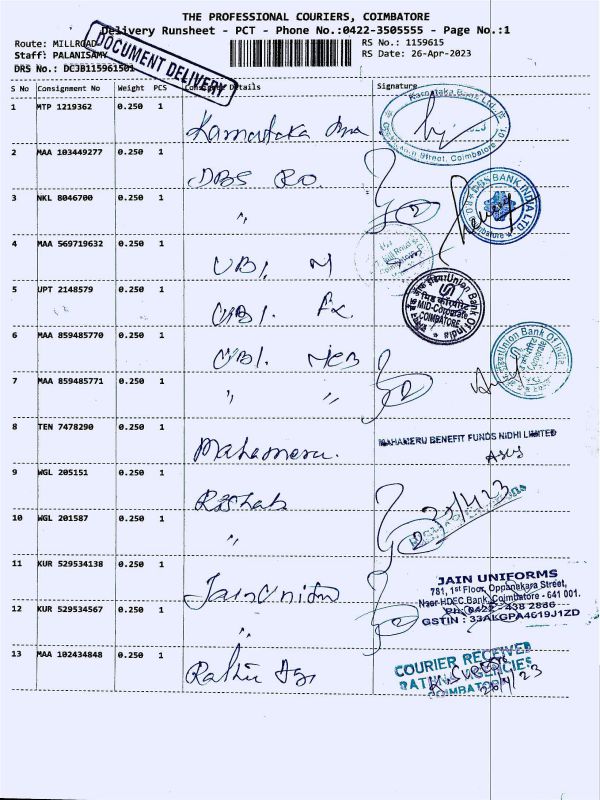 THE PROFESSIONAL COURIERS, COIMBATORE
Delivery Runsheet - PCT - Phone No.:0422-3505555 - Page No.:1
Route: MILLROAD
RS No.: 1159615
Staff: PALANISAMY
RS Date: 26-Apr-2023
DRS No.: DCJB115961501
DOCUMENT DELIVERY
S No Consignment No Weight PCS Consignee Details Signature
1 MTP 1219362 0.250 1 Karnataka
Karnataka Bank Ltd.,
Street, Coimbatore
2 MAA 103449277 0.250 1 DBS RO.
3 NKL 8046700 0.250 1 "
2
DBS BANK INDIA LTD
4 MAA 569719632 0.250 1 UBI, M
5 UPT 2148579 0.250 1 UBI.
Union Bank Of India
MID-Corporate
COIMBATORE
6 MAA 859485770 0.250 1 UBI. MCB
Union Bank Of India
7 MAA 859485771 0.250 1 " "
2
8 TEN 7478290 0.250 1 Mahameru.
MAHAMERU BENEFIT FUNDS NIDHI LIMITED
9 WGL 205151 0.250 1 Rishab
10 WGL 201587 0.250 1 "
2
11 KUR 529534138 0.250 1 Jain Uniform
JAIN UNIFORMS
781, 1st Floor, Oppanakara Street,
Near HDFC Bank, Coimbatore - 641 001.
Ph: 0422 - 438 2866
GSTIN : 33AKGPA4619J1ZD
12 KUR 529534567 0.250 1 "
2
13 MAA 102434848 0.250 1
COURIER RECEIVED
AGENCIES
COIMBATORE
26/4/23